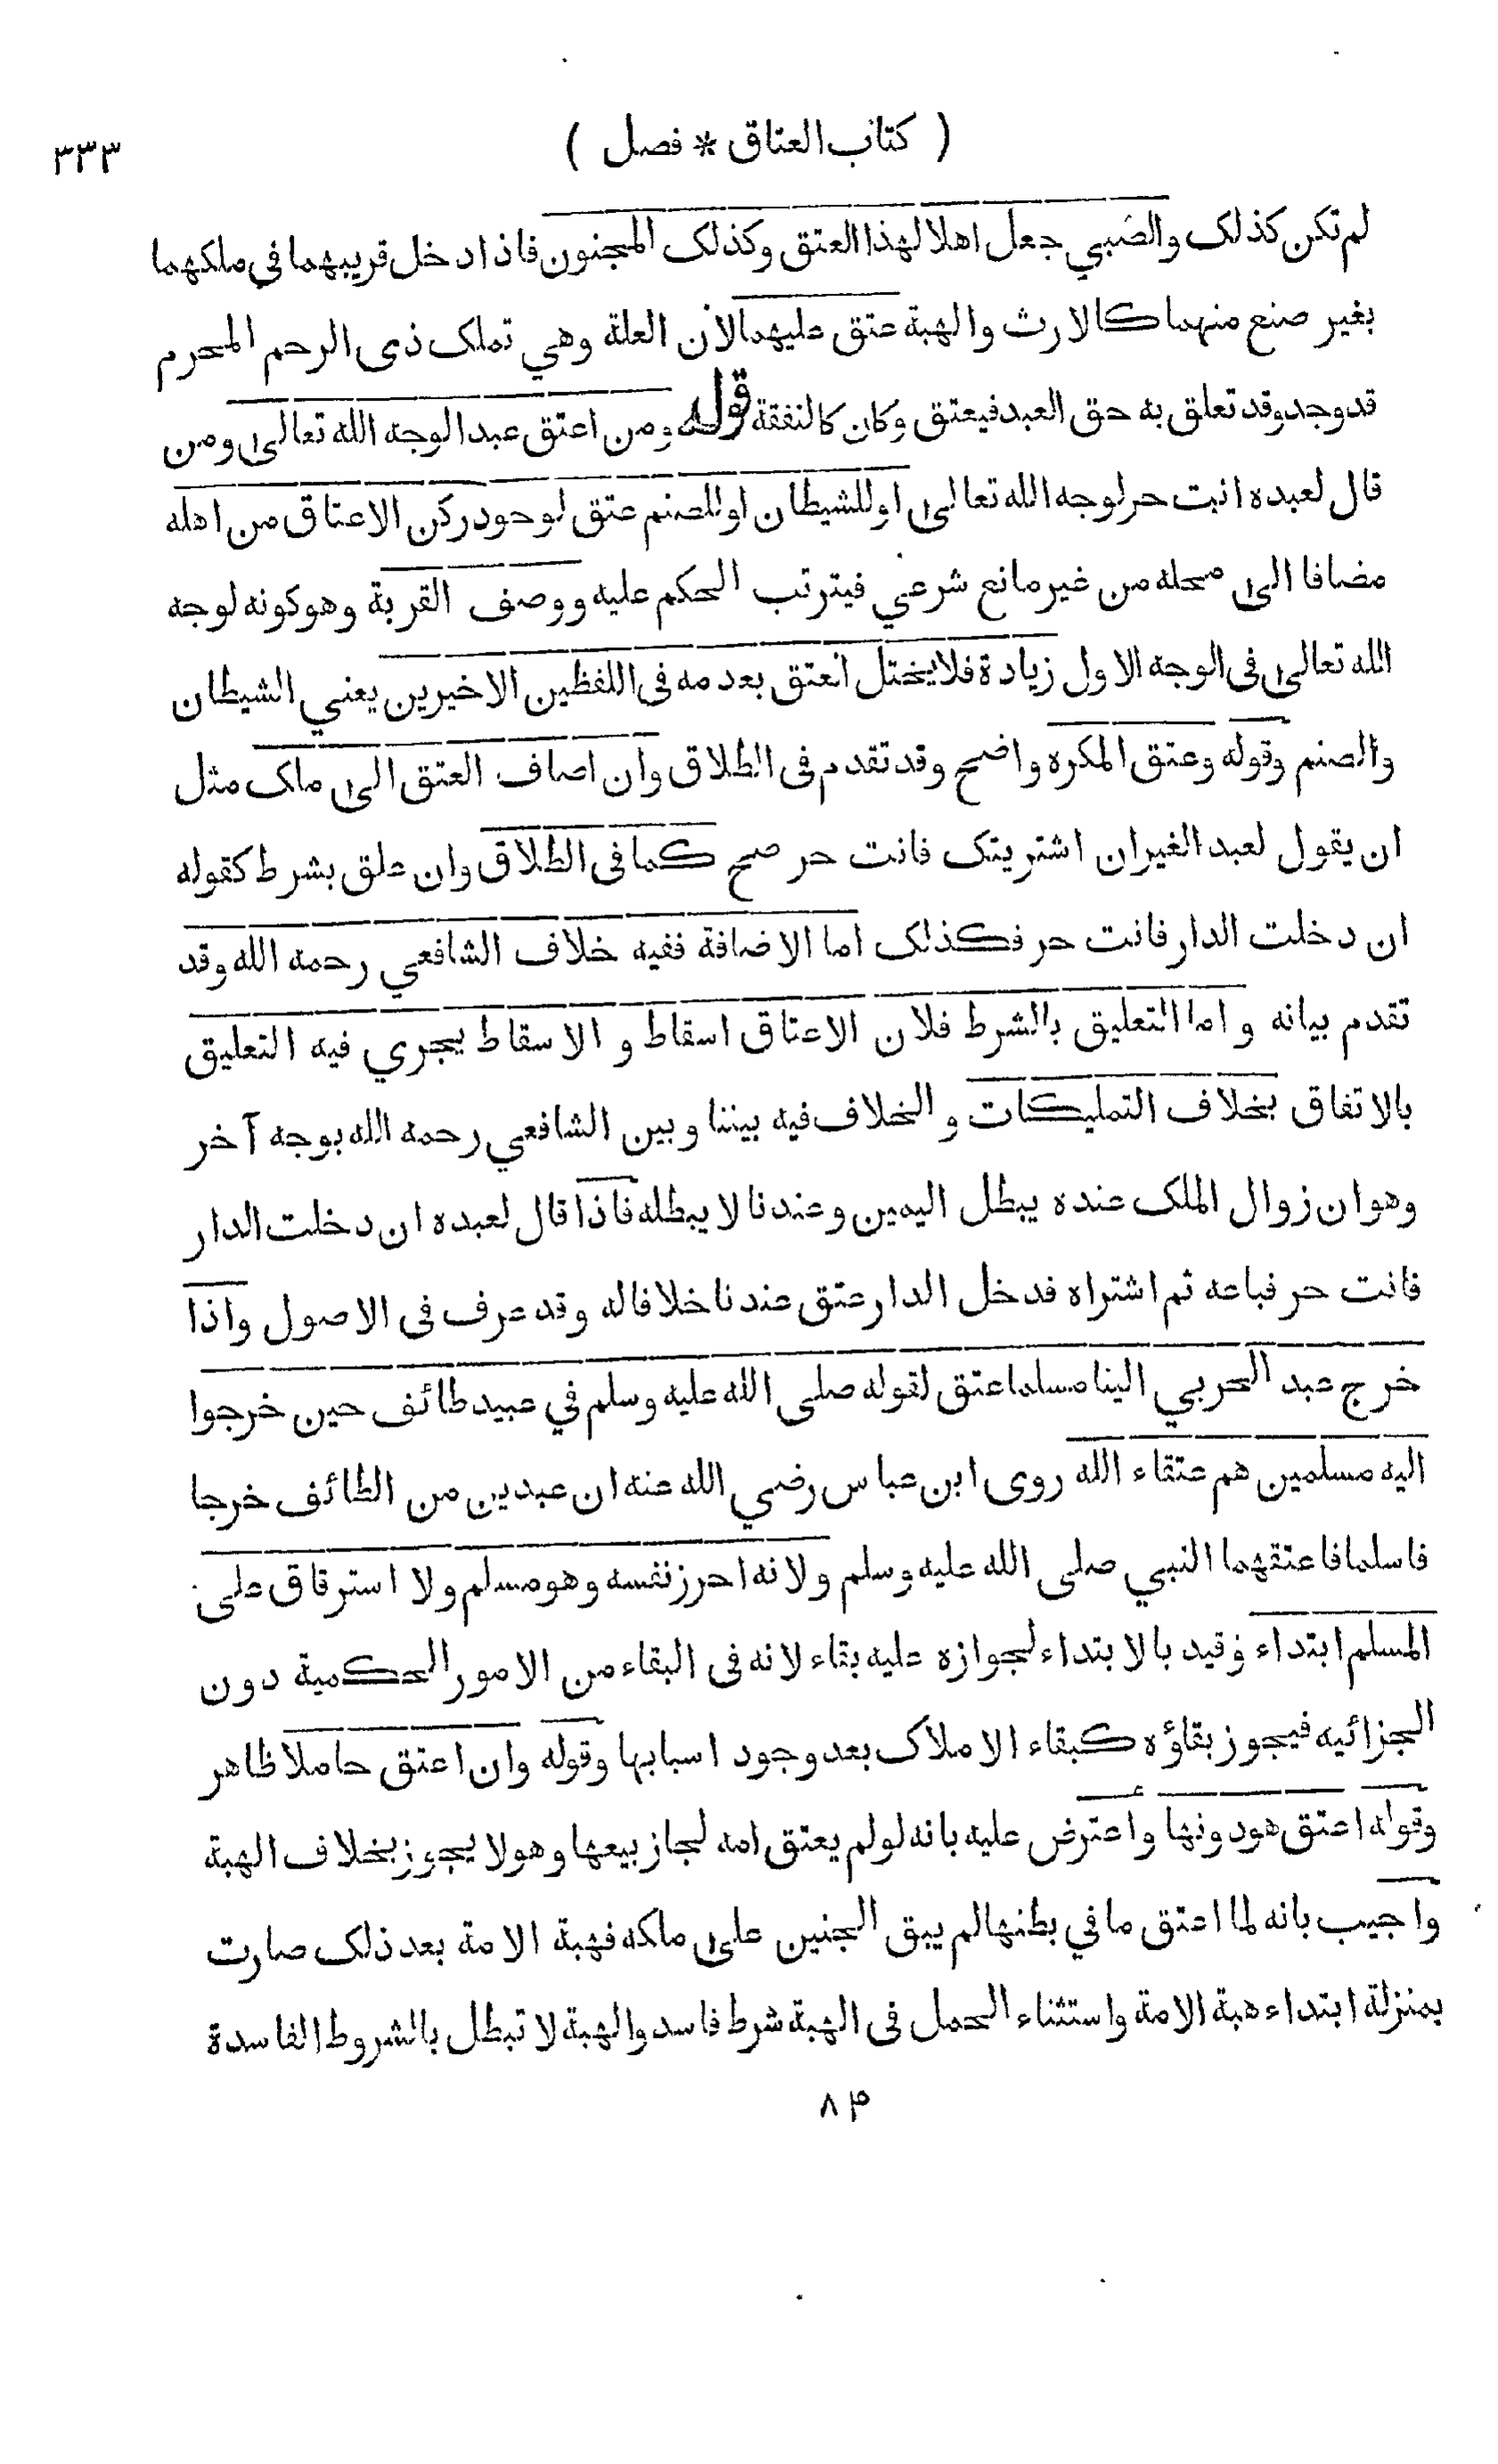 ( كتاب العتاق * فصل )
٣٣٣
لم تكن كذلك والصبي جعل اهلا لهذا العتق وكذلك المجنون فاذا دخل قريبهما في ملكهما
بغير صنع منهما كالارث والهبة عتق عليهما لان العلة وهي تملك ذى الرحم المحرم
قد وجد وقد تعلق به حق العبد فيعتق وكان كالنفقة قوله ومن اعتق عبدا لوجه الله تعالى ومن
قال لعبده انت حر لوجه الله تعالى او للشيطان او للصنم عتق لوجود ركن الاعتاق من اهله
مضافا الى محله من غير مانع شرعي فيترتب الحكم عليه ووصف القربة وهو كونه لوجه
الله تعالى فى الوجه الاول زيادة فلا يختل العتق بعدمه فى اللفظين الاخيرين يعني الشيطان
والصنم وقوله وعتق المكره واضح وقد تقدم فى الطلاق وان اضاف العتق الى ملك مثل
ان يقول لعبد الغير ان اشتريتك فانت حر صح كما فى الطلاق وان علق بشرط كقوله
ان دخلت الدار فانت حر فكذلك اما الاضافة ففيه خلاف الشافعي رحمه الله وقد
تقدم بيانه و اما التعليق بالشرط فلان الاعتاق اسقاط و الاسقاط يجري فيه التعليق
بالاتفاق بخلاف التمليكات و الخلاف فيه بيننا وبين الشافعي رحمه الله بوجه آخر
وهو ان زوال الملك عنده يبطل اليمين وعندنا لا يبطله فاذا قال لعبده ان دخلت الدار
فانت حر فباعه ثم اشتراه فدخل الدار عتق عندنا خلافا له وقد عرف فى الاصول واذا
خرج عبد الحربي الينا مسلما عتق لقوله صلى الله عليه وسلم في عبيد طائف حين خرجوا
اليه مسلمين هم عتقاء الله روى ابن عباس رضي الله عنه ان عبدين من الطائف خرجا
فاسلما فاعتقهما النبي صلى الله عليه وسلم ولانه احرز نفسه وهو مسلم ولا استرقاق على
المسلم ابتداء وقيد بالابتداء لجوازه عليه بقاء لانه فى البقاء من الامور الحكمية دون
الجزائيه فيجوز بقاؤه كبقاء الاملاك بعد وجود اسبابها وقوله وان اعتق حاملا ظاهر
وقوله اعتق هو دونها واعترض عليه بانه لو لم يعتق امه لجاز بيعها وهو لا يجوز بخلاف الهبة
واجيب بانه لما اعتق ما في بطنها لم يبق الجنين على ملكه فهبة الامة بعد ذلك صارت
بمنزلة ابتداء هبة الامة واستثناء الحمل فى الهبة شرط فاسد والهبة لا تبطل بالشروط الفاسدة
٨٤